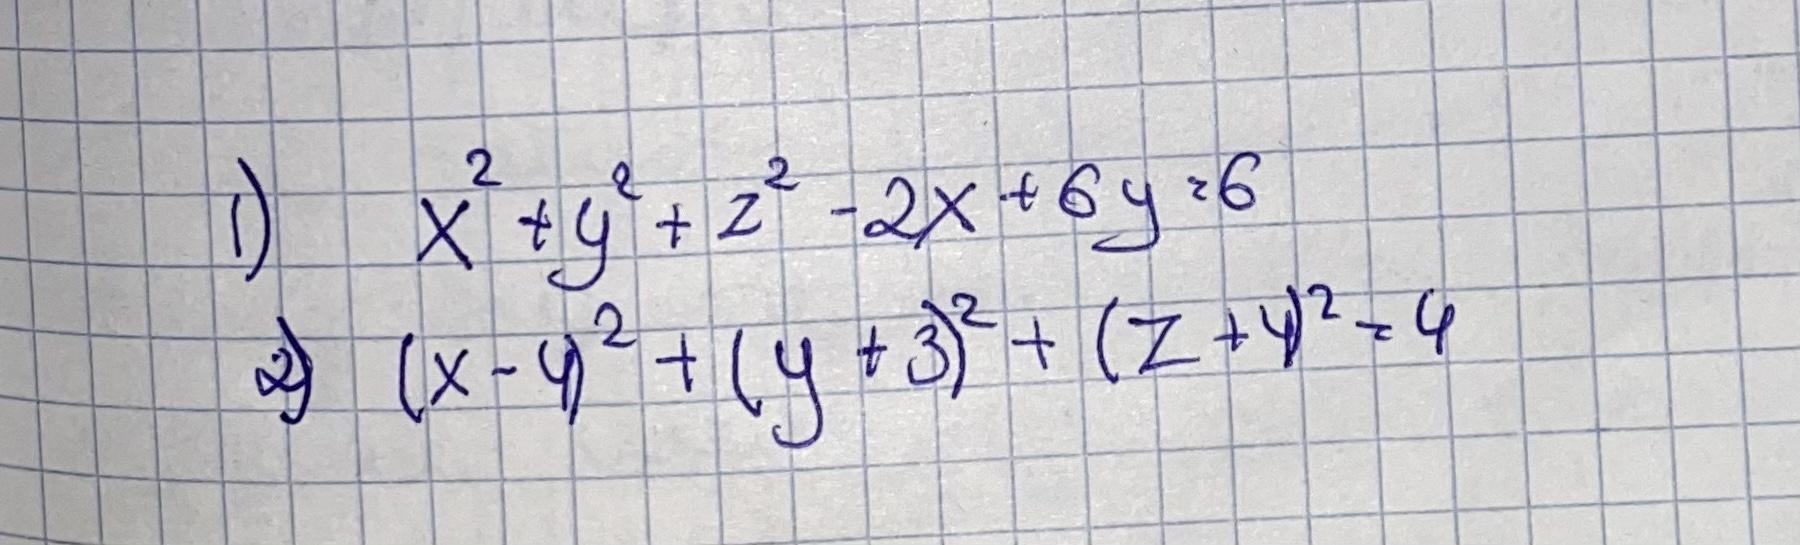 1) x² + y² + z² - 2x + 6y = 6
2) (x - 4)² + (y + 3)² + (z + 4)² = 4